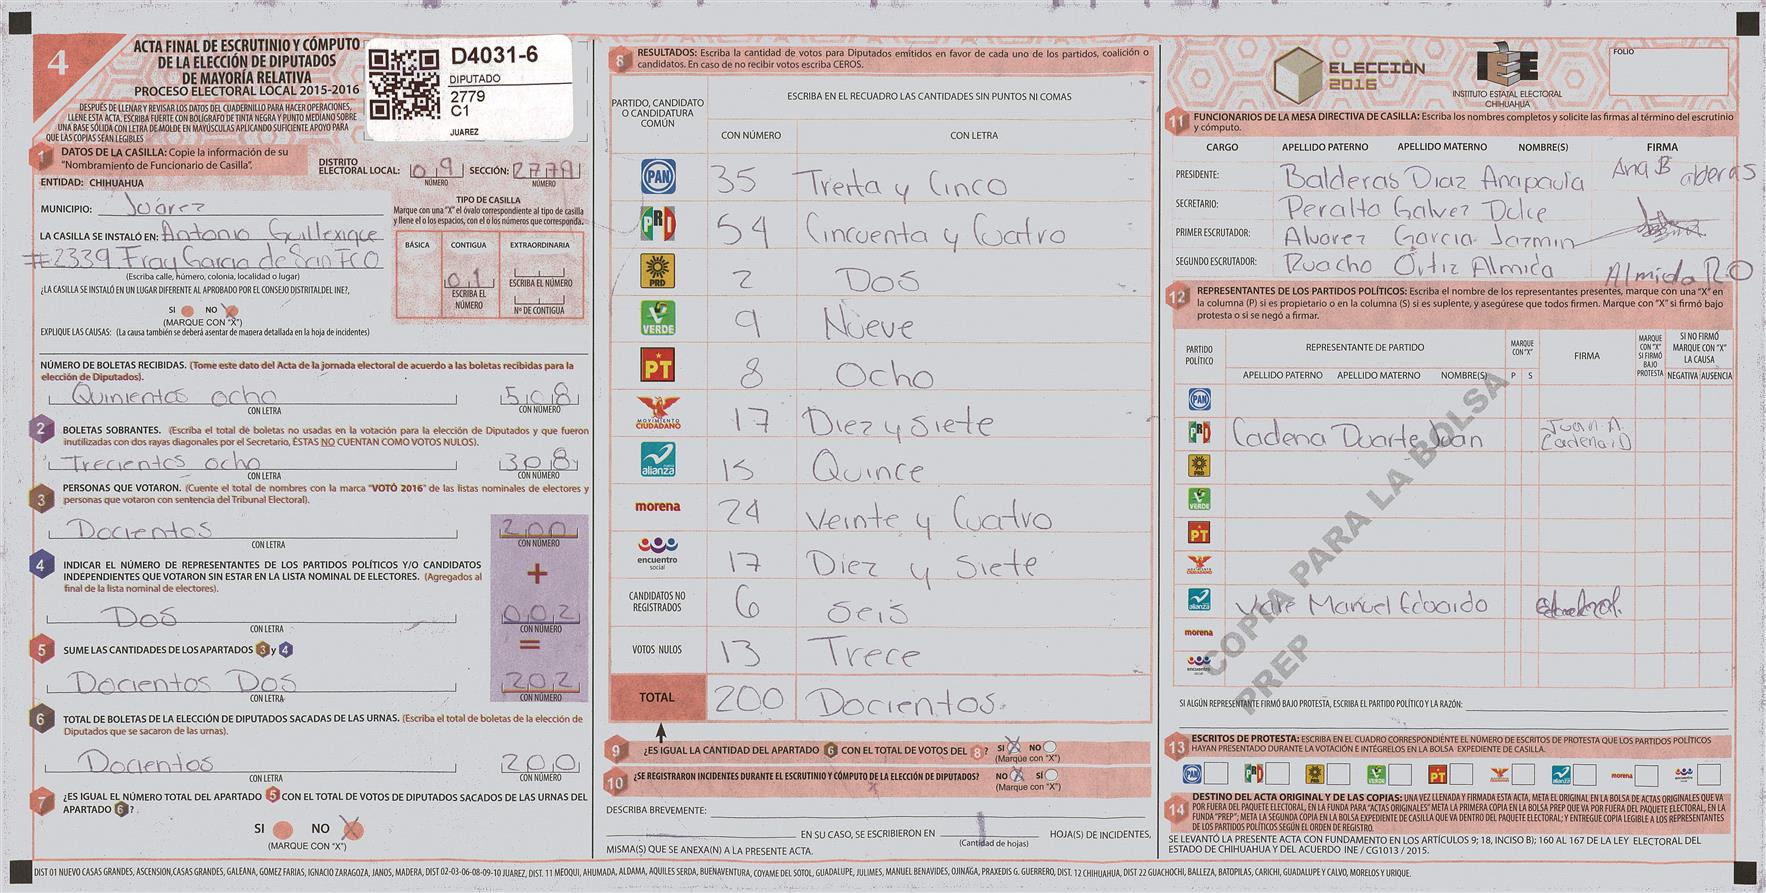 4
ACTA FINAL DE ESCRUTINIO Y CÓMPUTO
DE LA ELECCIÓN DE DIPUTADOS
DE MAYORÍA RELATIVA
PROCESO ELECTORAL LOCAL 2015-2016
DESPUÉS DE LLENAR Y REVISAR LOS DATOS DEL CUADERNILLO PARA HACER OPERACIONES,
LLENE ESTA ACTA. ESCRIBA FUERTE CON BOLÍGRAFO DE TINTA NEGRA Y PUNTO MEDIANO SOBRE
UNA BASE SÓLIDA CON LETRA DE MOLDE EN MAYÚSCULAS APLICANDO SUFICIENTE APOYO PARA
QUE LAS COPIAS SEAN LEGIBLES
D4031-6
DIPUTADO
2779
C1
JUAREZ
1 DATOS DE LA CASILLA: Copie la información de su
"Nombramiento de Funcionario de Casilla".
DISTRITO ELECTORAL LOCAL: 09 NÚMERO SECCIÓN: 2779 NÚMERO
ENTIDAD: CHIHUAHUA
MUNICIPIO: Juárez
LA CASILLA SE INSTALÓ EN: Antonio Guillexique
#2339 Fray Garcia de San FCO
(Escriba calle, número, colonia, localidad o lugar)
¿LA CASILLA SE INSTALÓ EN UN LUGAR DIFERENTE AL APROBADO POR EL CONSEJO DISTRITAL DEL INE?,
SI NO X
(MARQUE CON "X")
EXPLIQUE LAS CAUSAS: (La causa también se deberá asentar de manera detallada en la hoja de incidentes)
TIPO DE CASILLA
Marque con una "X" el óvalo correspondiente al tipo de casilla
y llene el o los espacios, con el o los números que corresponda.
BÁSICA CONTIGUA EXTRAORDINARIA
01
ESCRIBA EL NÚMERO
ESCRIBA EL NÚMERO
Nº DE CONTIGUA
NÚMERO DE BOLETAS RECIBIDAS. (Tome este dato del Acta de la jornada electoral de acuerdo a las boletas recibidas para la
elección de Diputados).
Quinientos ocho 508
CON LETRA CON NÚMERO
2 BOLETAS SOBRANTES. (Escriba el total de boletas no usadas en la votación para la elección de Diputados y que fueron
inutilizadas con dos rayas diagonales por el Secretario, ÉSTAS NO CUENTAN COMO VOTOS NULOS).
Trecientos ocho 308
CON LETRA CON NÚMERO
3 PERSONAS QUE VOTARON. (Cuente el total de nombres con la marca "VOTÓ 2016" de las listas nominales de electores y
personas que votaron con sentencia del Tribunal Electoral).
Docientos 200
CON LETRA CON NÚMERO
+
4 INDICAR EL NÚMERO DE REPRESENTANTES DE LOS PARTIDOS POLÍTICOS Y/O CANDIDATOS
INDEPENDIENTES QUE VOTARON SIN ESTAR EN LA LISTA NOMINAL DE ELECTORES. (Agregados al
final de la lista nominal de electores).
Dos 002
CON LETRA CON NÚMERO
=
5 SUME LAS CANTIDADES DE LOS APARTADOS 3 y 4
Docientos Dos 202
CON LETRA CON NÚMERO
6 TOTAL DE BOLETAS DE LA ELECCIÓN DE DIPUTADOS SACADAS DE LAS URNAS. (Escriba el total de boletas de la elección de
Diputados que se sacaron de las urnas).
Docientos 200
CON LETRA CON NÚMERO
7 ¿ES IGUAL EL NÚMERO TOTAL DEL APARTADO 5 CON EL TOTAL DE VOTOS DE DIPUTADOS SACADOS DE LAS URNAS DEL
APARTADO 6?
SI NO X
(MARQUE CON "X")
8 RESULTADOS: Escriba la cantidad de votos para Diputados emitidos en favor de cada uno de los partidos, coalición o
candidatos. En caso de no recibir votos escriba CEROS.
PARTIDO, CANDIDATO
O CANDIDATURA
COMÚN
ESCRIBA EN EL RECUADRO LAS CANTIDADES SIN PUNTOS NI COMAS
CON NÚMERO CON LETRA
PAN 35 Treita y Cinco
PRD 54 Cincuenta y Cuatro
PRD 2 Dos
VERDE 9 Nueve
PT 8 Ocho
MOVIMIENTO CIUDADANO 17 Diez y siete
alianza 15 Quince
morena 24 Veinte y Cuatro
encuentro social 17 Diez y Siete
CANDIDATOS NO REGISTRADOS 6 Seis
VOTOS NULOS 13 Trece
TOTAL 200 Docientos
9 ¿ES IGUAL LA CANTIDAD DEL APARTADO 6 CON EL TOTAL DE VOTOS DEL 8? SI X NO
(Marque con "X")
10 ¿SE REGISTRARON INCIDENTES DURANTE EL ESCRUTINIO Y CÓMPUTO DE LA ELECCIÓN DE DIPUTADOS? NO X SÍ
(Marque con "X")
DESCRIBA BREVEMENTE:
EN SU CASO, SE ESCRIBIERON EN HOJA(S) DE INCIDENTES,
(Cantidad de hojas)
MISMA(S) QUE SE ANEXA(N) A LA PRESENTE ACTA.
ELECCIÓN
2016
IEE
INSTITUTO ESTATAL ELECTORAL
CHIHUAHUA
FOLIO
11 FUNCIONARIOS DE LA MESA DIRECTIVA DE CASILLA: Escriba los nombres completos y solicite las firmas al término del escrutinio
y cómputo.
CARGO APELLIDO PATERNO APELLIDO MATERNO NOMBRE(S) FIRMA
PRESIDENTE: Balderas Diaz Anapaula Ana B alderas
SECRETARIO: Peralta Galvez Dulce
PRIMER ESCRUTADOR: Alvarez Garcia Jazmin
SEGUNDO ESCRUTADOR: Ruacho Ortiz Almida Almida R.O
12 REPRESENTANTES DE LOS PARTIDOS POLÍTICOS: Escriba el nombre de los representantes presentes, marque con una "X" en
la columna (P) si es propietario o en la columna (S) si es suplente, y asegúrese que todos firmen. Marque con "X" si firmó bajo
protesta o si se negó a firmar.
PARTIDO POLÍTICO
REPRESENTANTE DE PARTIDO
APELLIDO PATERNO APELLIDO MATERNO NOMBRE(S)
MARQUE CON "X"
P S
FIRMA
MARQUE CON "X" SI FIRMÓ BAJO PROTESTA
SI NO FIRMÓ MARQUE CON "X" LA CAUSA
NEGATIVA AUSENCIA
PAN
PRD Cadena Duarte Juan Juan A. Cadena D
PRD
VERDE
PT
alianza Manuel Edoardo
morena
COPIA PARA LA BOLSA
PREP
SI ALGÚN REPRESENTANTE FIRMÓ BAJO PROTESTA, ESCRIBA EL PARTIDO POLÍTICO Y LA RAZÓN:
13 ESCRITOS DE PROTESTA: ESCRIBA EN EL CUADRO CORRESPONDIENTE EL NÚMERO DE ESCRITOS DE PROTESTA QUE LOS PARTIDOS POLÍTICOS
HAYAN PRESENTADO DURANTE LA VOTACIÓN E INTÉGRELOS EN LA BOLSA EXPEDIENTE DE CASILLA.
PAN PRD PRD VERDE PT alianza morena
14 DESTINO DEL ACTA ORIGINAL Y DE LAS COPIAS: UNA VEZ LLENADA Y FIRMADA ESTA ACTA, META EL ORIGINAL EN LA BOLSA DE ACTAS ORIGINALES QUE VA
POR FUERA DEL PAQUETE ELECTORAL, EN LA FUNDA PARA "ACTAS ORIGINALES" META LA PRIMERA COPIA EN LA BOLSA PREP QUE VA POR FUERA DEL PAQUETE ELECTORAL, EN LA
FUNDA "PREP"; META LA SEGUNDA COPIA EN LA BOLSA EXPEDIENTE DE CASILLA QUE VA DENTRO DEL PAQUETE ELECTORAL; Y ENTREGUE COPIA LEGIBLE A LOS REPRESENTANTES
DE LOS PARTIDOS POLÍTICOS SEGÚN EL ORDEN DE REGISTRO.
SE LEVANTÓ LA PRESENTE ACTA CON FUNDAMENTO EN LOS ARTÍCULOS 9; 18, INCISO B); 160 AL 167 DE LA LEY ELECTORAL DEL
ESTADO DE CHIHUAHUA Y DEL ACUERDO INE / CG1013 / 2015.
DIST 01 NUEVO CASAS GRANDES, ASCENSION,CASAS GRANDES, GALEANA, GOMEZ FARIAS, IGNACIO ZARAGOZA, JANOS, MADERA, DIST 02-03-06-08-09-10 JUAREZ, DIST. 11 MEOQUI, AHUMADA, ALDAMA, AQUILES SERDA, BUENAVENTURA, COYAME DEL SOTOL, GUADALUPE, JULIMES, MANUEL BENAVIDES, OJINAGA, PRAXEDIS G. GUERRERO, DIST. 12 CHIHUAHUA, DIST 22 GUACHOCHI, BALLEZA, BATOPILAS, CARICHI, GUADALUPE Y CALVO, MORELOS Y URIQUE.